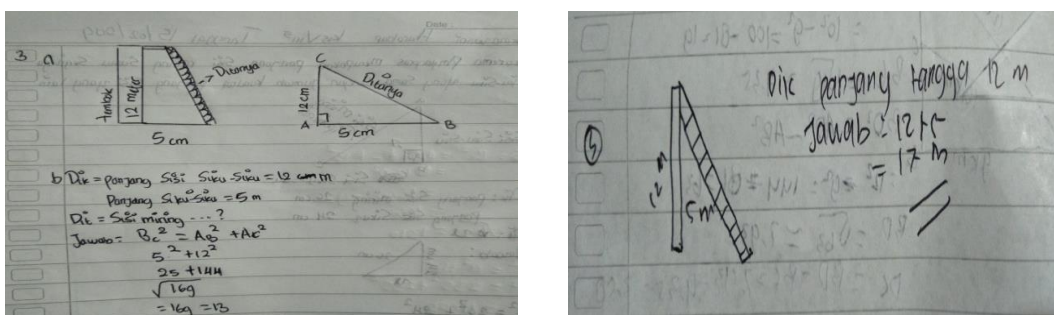 3 a
Ditanya
tembok
12 meter
5 cm
C
Ditanya
12 cm
A
5 cm
B
b Dik = Panjang Sisi Siku-Siku = 12 m
Panjang Siku-Siku = 5 m
Dit = Sisi miring ...?
Jawab = BC² = AB² + AC²
5² + 12²
25 + 144
√169
= 169 = 13
5
12 m
5 m
Dik panjang tangga 12 m
Jawab = 12 + 5
= 17 m